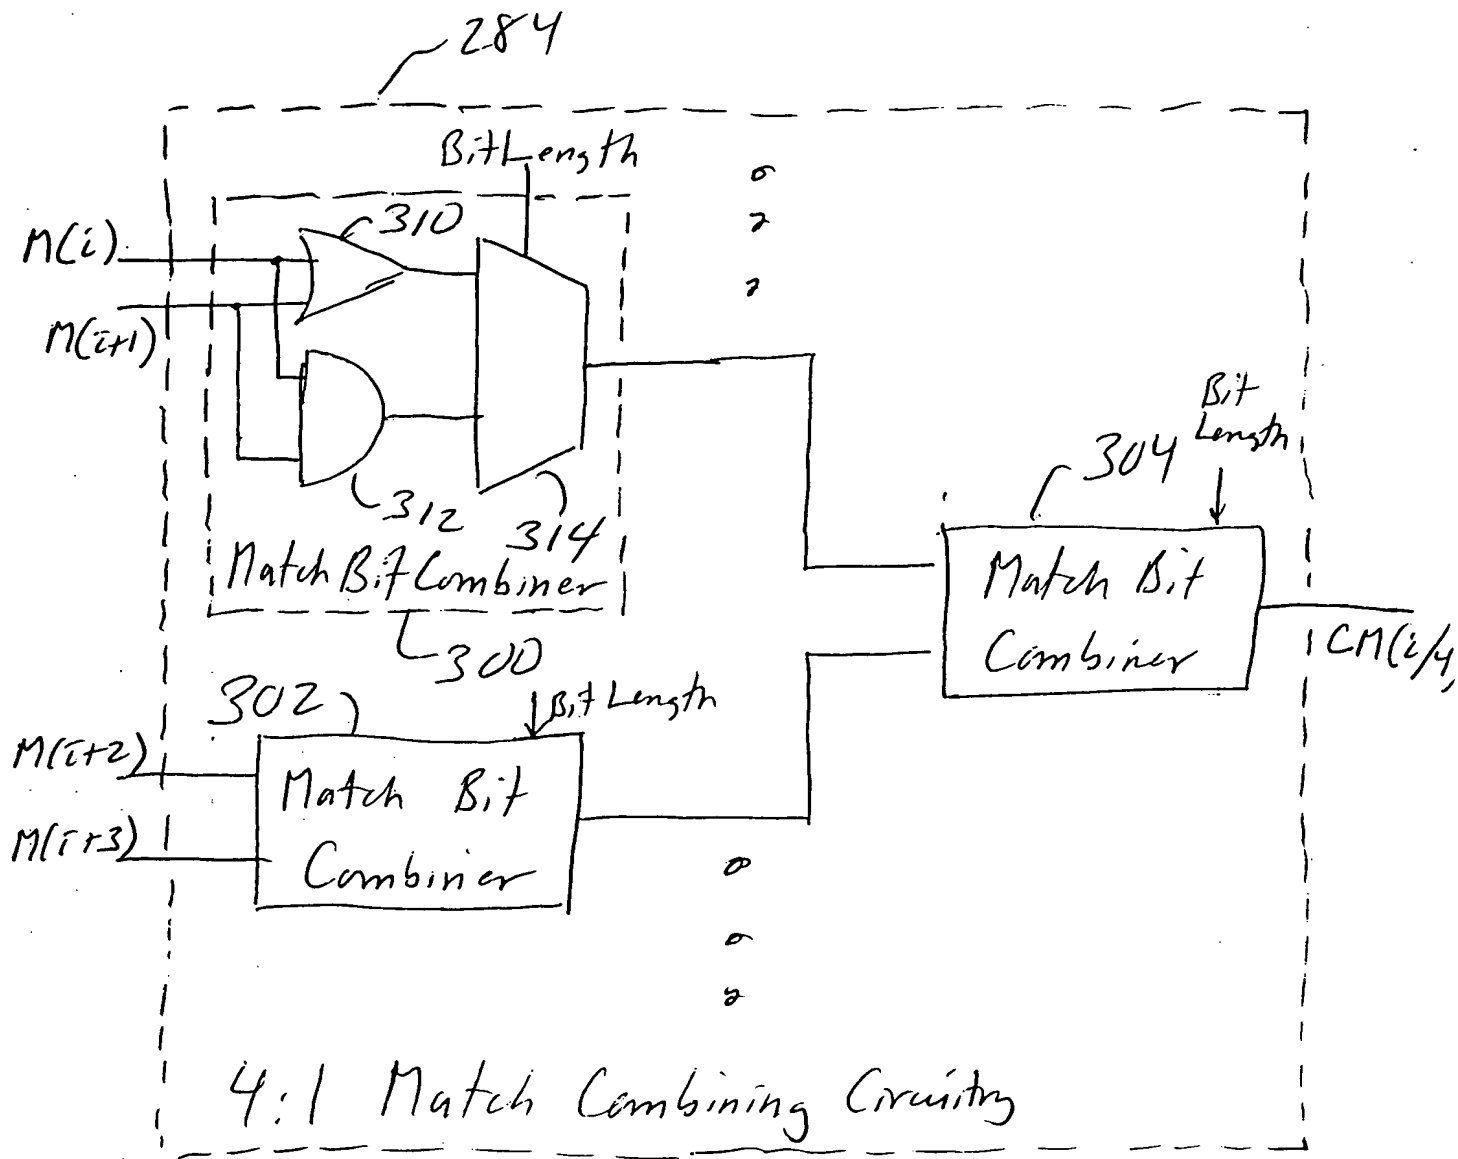 284
BitLength
310
M(i)
M(i+1)
312
314
Match Bit Combiner
300
Bit
Length
304
Match Bit
Combiner
CM(i/4,
302
Bit Length
M(i+2)
Match Bit
Combiner
M(i+3)
4:1 Match Combining Circuitry